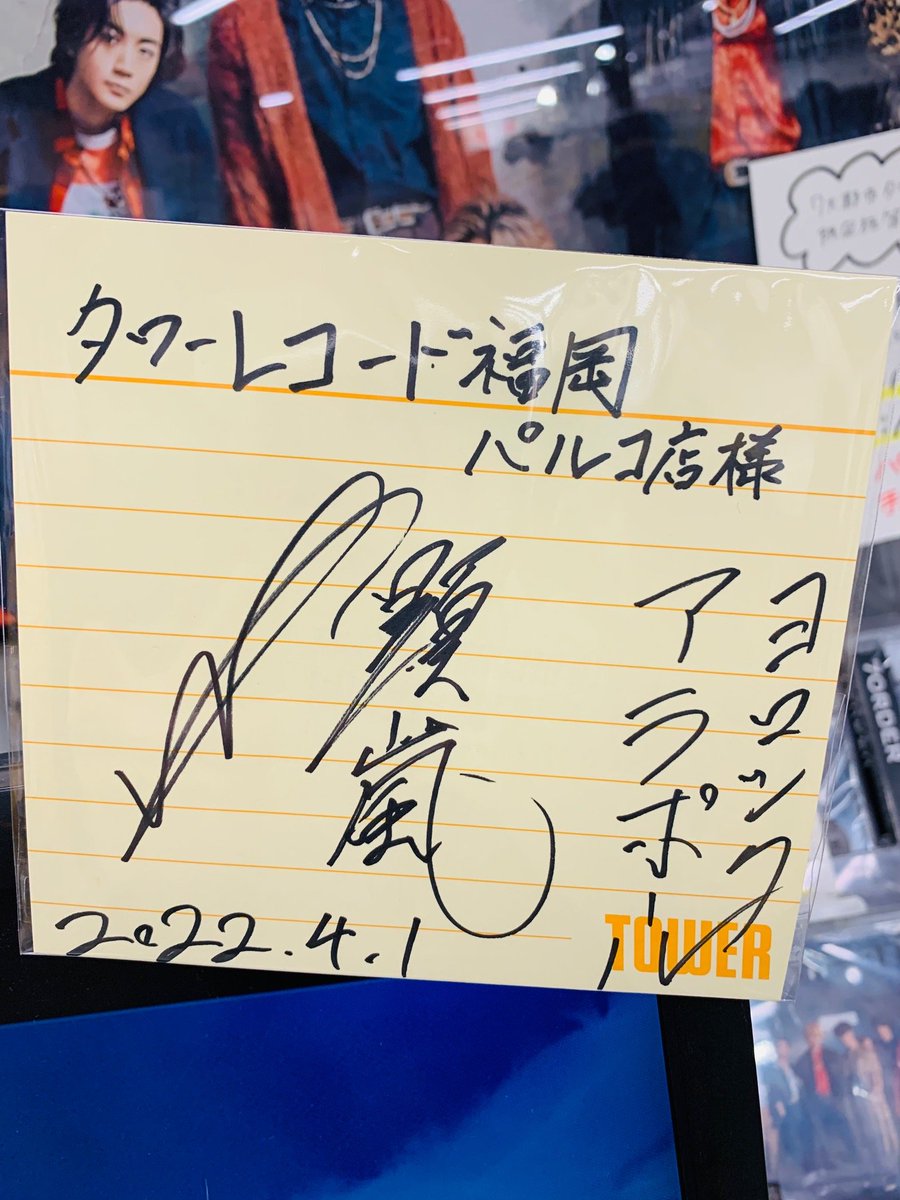 タワーレコード福岡
パルコ店様
アラポール
顕嵐
2022.4.1
TOWER
7ORDER